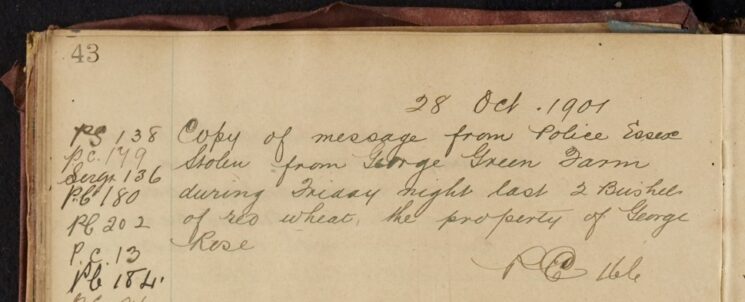 43
28 Oct. 1901
PS 138
P.C. 179
Sergt 136
PC 180
PC 202
P.C. 13
PC 184.
Copy of message from Police Essex
Stolen from George Green Farm
during Friday night last 2 Bushels
of red wheat, the property of George
Rose
PC 166